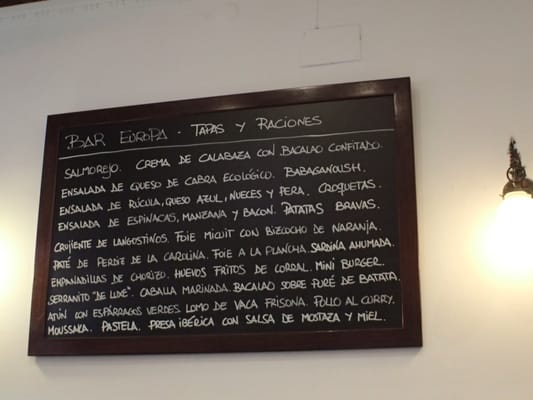 BAR EUROPA - TAPAS Y RACIONES
SALMOREJO. CREMA DE CALABAZA CON BACALAO CONFITADO.
ENSALADA DE QUESO DE CABRA ECOLÓGICO. BABAGANOUSH.
ENSALADA DE RÚCULA, QUESO AZUL, NUECES Y PERA. CROQUETAS.
ENSALADA DE ESPINACAS, MANZANA Y BACON. PATATAS BRAVAS.
CRUJIENTE DE LANGOSTINOS. FOIE MICUIT CON BIZCOCHO DE NARANJA.
PATÉ DE PERDIZ DE LA CAROLINA. FOIE A LA PLANCHA SARDINA AHUMADA.
EMPANADILLAS DE CHORIZO. HUEVOS FRITOS DE CORRAL. MINI BURGER.
SERRANITO "DE LUJE". CABALLA MARINADA. BACALAO SOBRE PURÉ DE BATATA.
ATÚN CON ESPÁRRAGOS VERDES. LOMO DE VACA FRISONA. POLLO AL CURRY.
MOUSSAKA. PASTELA. PRESA IBÉRICA CON SALSA DE MOSTAZA Y MIEL.